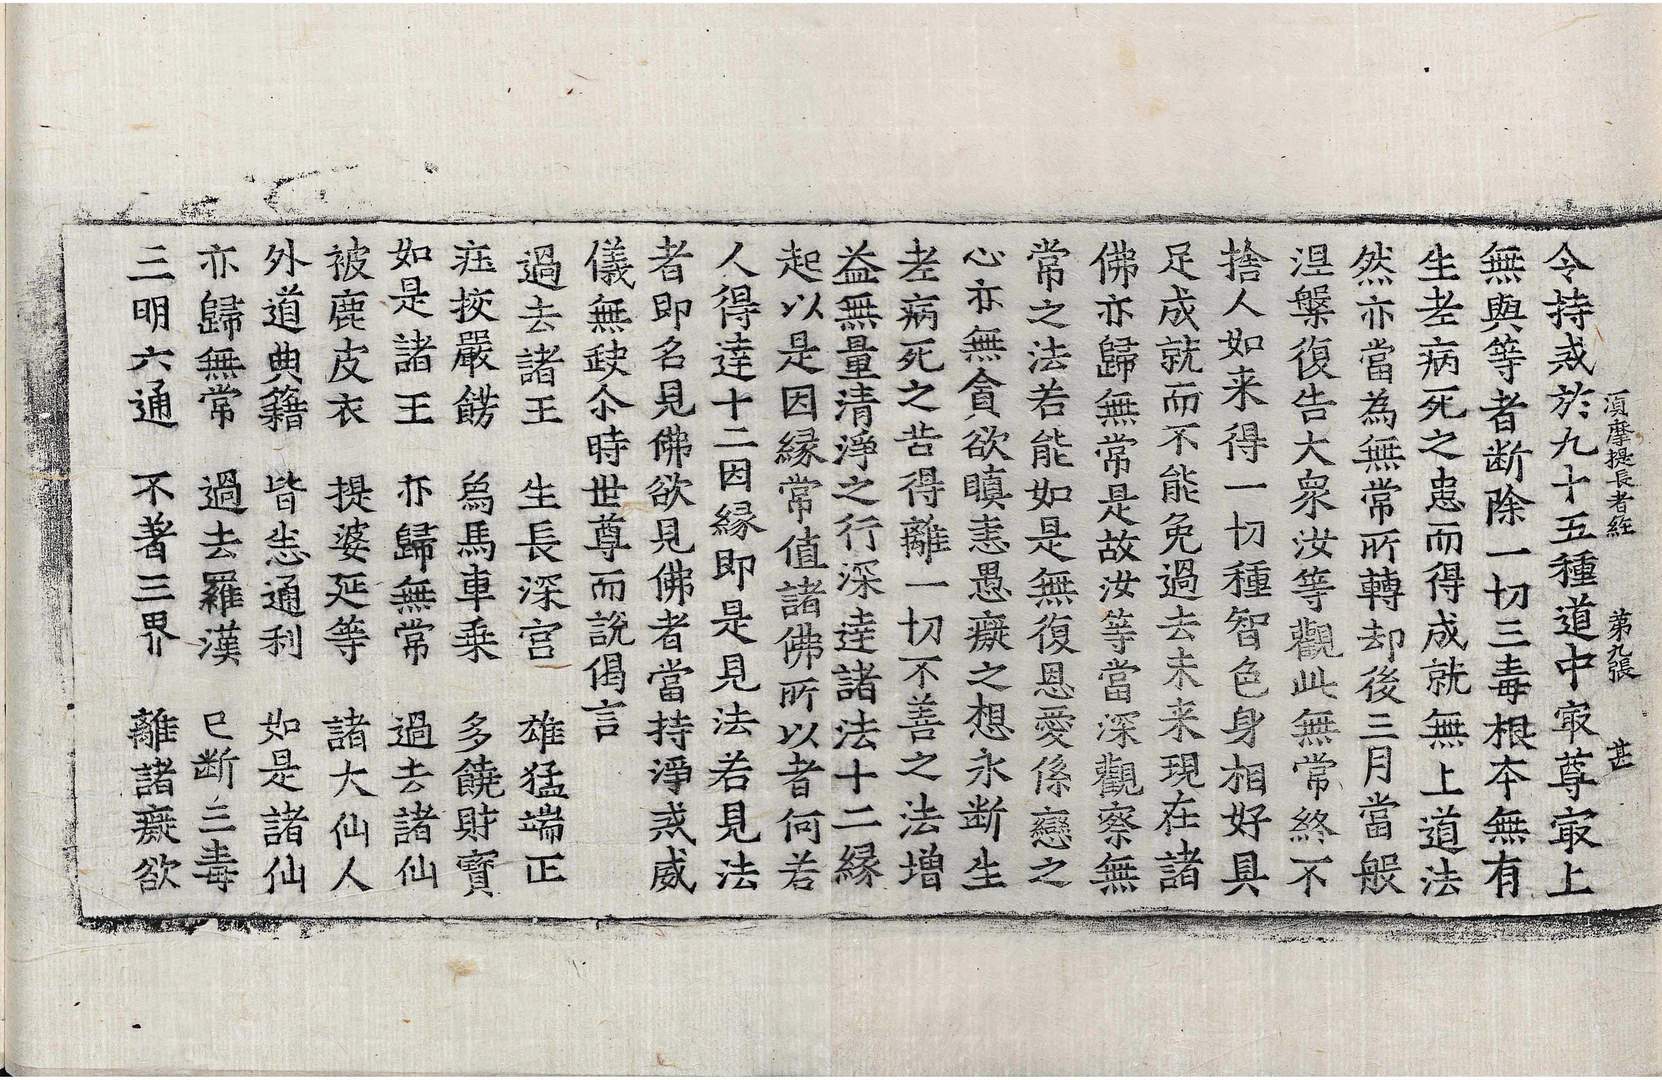 湏摩提長者経 第九張 甚
令持戒於九十五種道中㝡尊㝡上
無與等者断除一切三毒根本無有
生老病死之患而得成就無上道法
然亦當為無常所轉却後三月當般
涅槃復告大衆汝等觀此無常終不
捨人如来得一切種智色身相好具
足成就而不能免過去未来現在諸
佛亦歸無常是故汝等當深觀察無
常之法若能如是無復恩愛係戀之
心亦無貪欲瞋恚愚癡之想永断生
老病死之苦得離一切不善之法增
益無量清淨之行深達諸法十二縁
起以是因縁常值諸佛所以者何若
人得達十二因縁即是見法若見法
者即名見佛欲見佛者當持淨戒威
儀無缺尒時世尊而說偈言
過去諸王 生長深宫 雄猛端正
莊挍嚴餝 烏馬車乗 多饒財寳
如是諸王 亦歸無常 過去諸仙
被鹿皮衣 提婆延等 諸大仙人
外道典籍 皆悉通利 如是諸仙
亦歸無常 過去羅漢 已断三毒
三明六通 不著三界 離諸癡欲